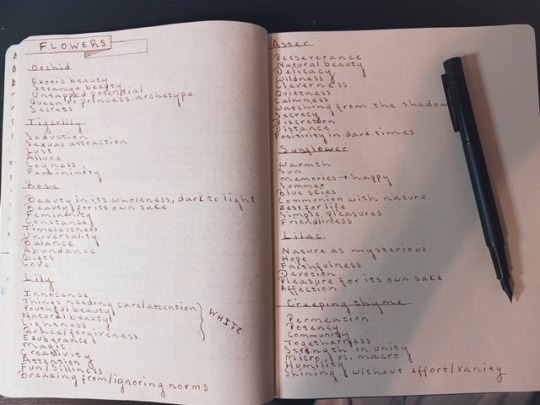 FLOWERS
Orchid
Exotic beauty
Strange beauty
Untapped potential
Queen or princess archetype
Secrets
Tigerlily
Seduction
Sexual attraction
Lust
Allure
Coyness
Femininity
Rose
Beauty in its wholeness, dark to light
Beauty for its own sake
Femininity
Constance
Timelessness
Universality
Balance
Abundance
Gifts
Love
Lily
Innocence
Things needing care/attention
Youthful beauty
Natural beauty
Lightness
Grace/forgiveness
Exuberance
WHITE
Magic
Creativity
Attention
Fun/Silliness
Breaking from/ignoring norms
Aster
Perseverance
Natural beauty
Delicacy
Wildness
Cleverness
Quietness
Calmness
Watching from the shadow
Secrecy
Discretion
Distance
Positivity in dark times
Sunflower
Warmth
Sun
Memories → happy
Summer
Blue skies
Communion with nature
Zest for life
Simple pleasures
Friendliness
Lilac
Nature as mysterious
Hope
Faithfulness
Devotion
Pleasure for its own sake
Affection
Creeping thyme
Permeation
Potency
Community
Togetherness
Strength in unity
Micro vs. macro
Humility
Shining without effort/vanity